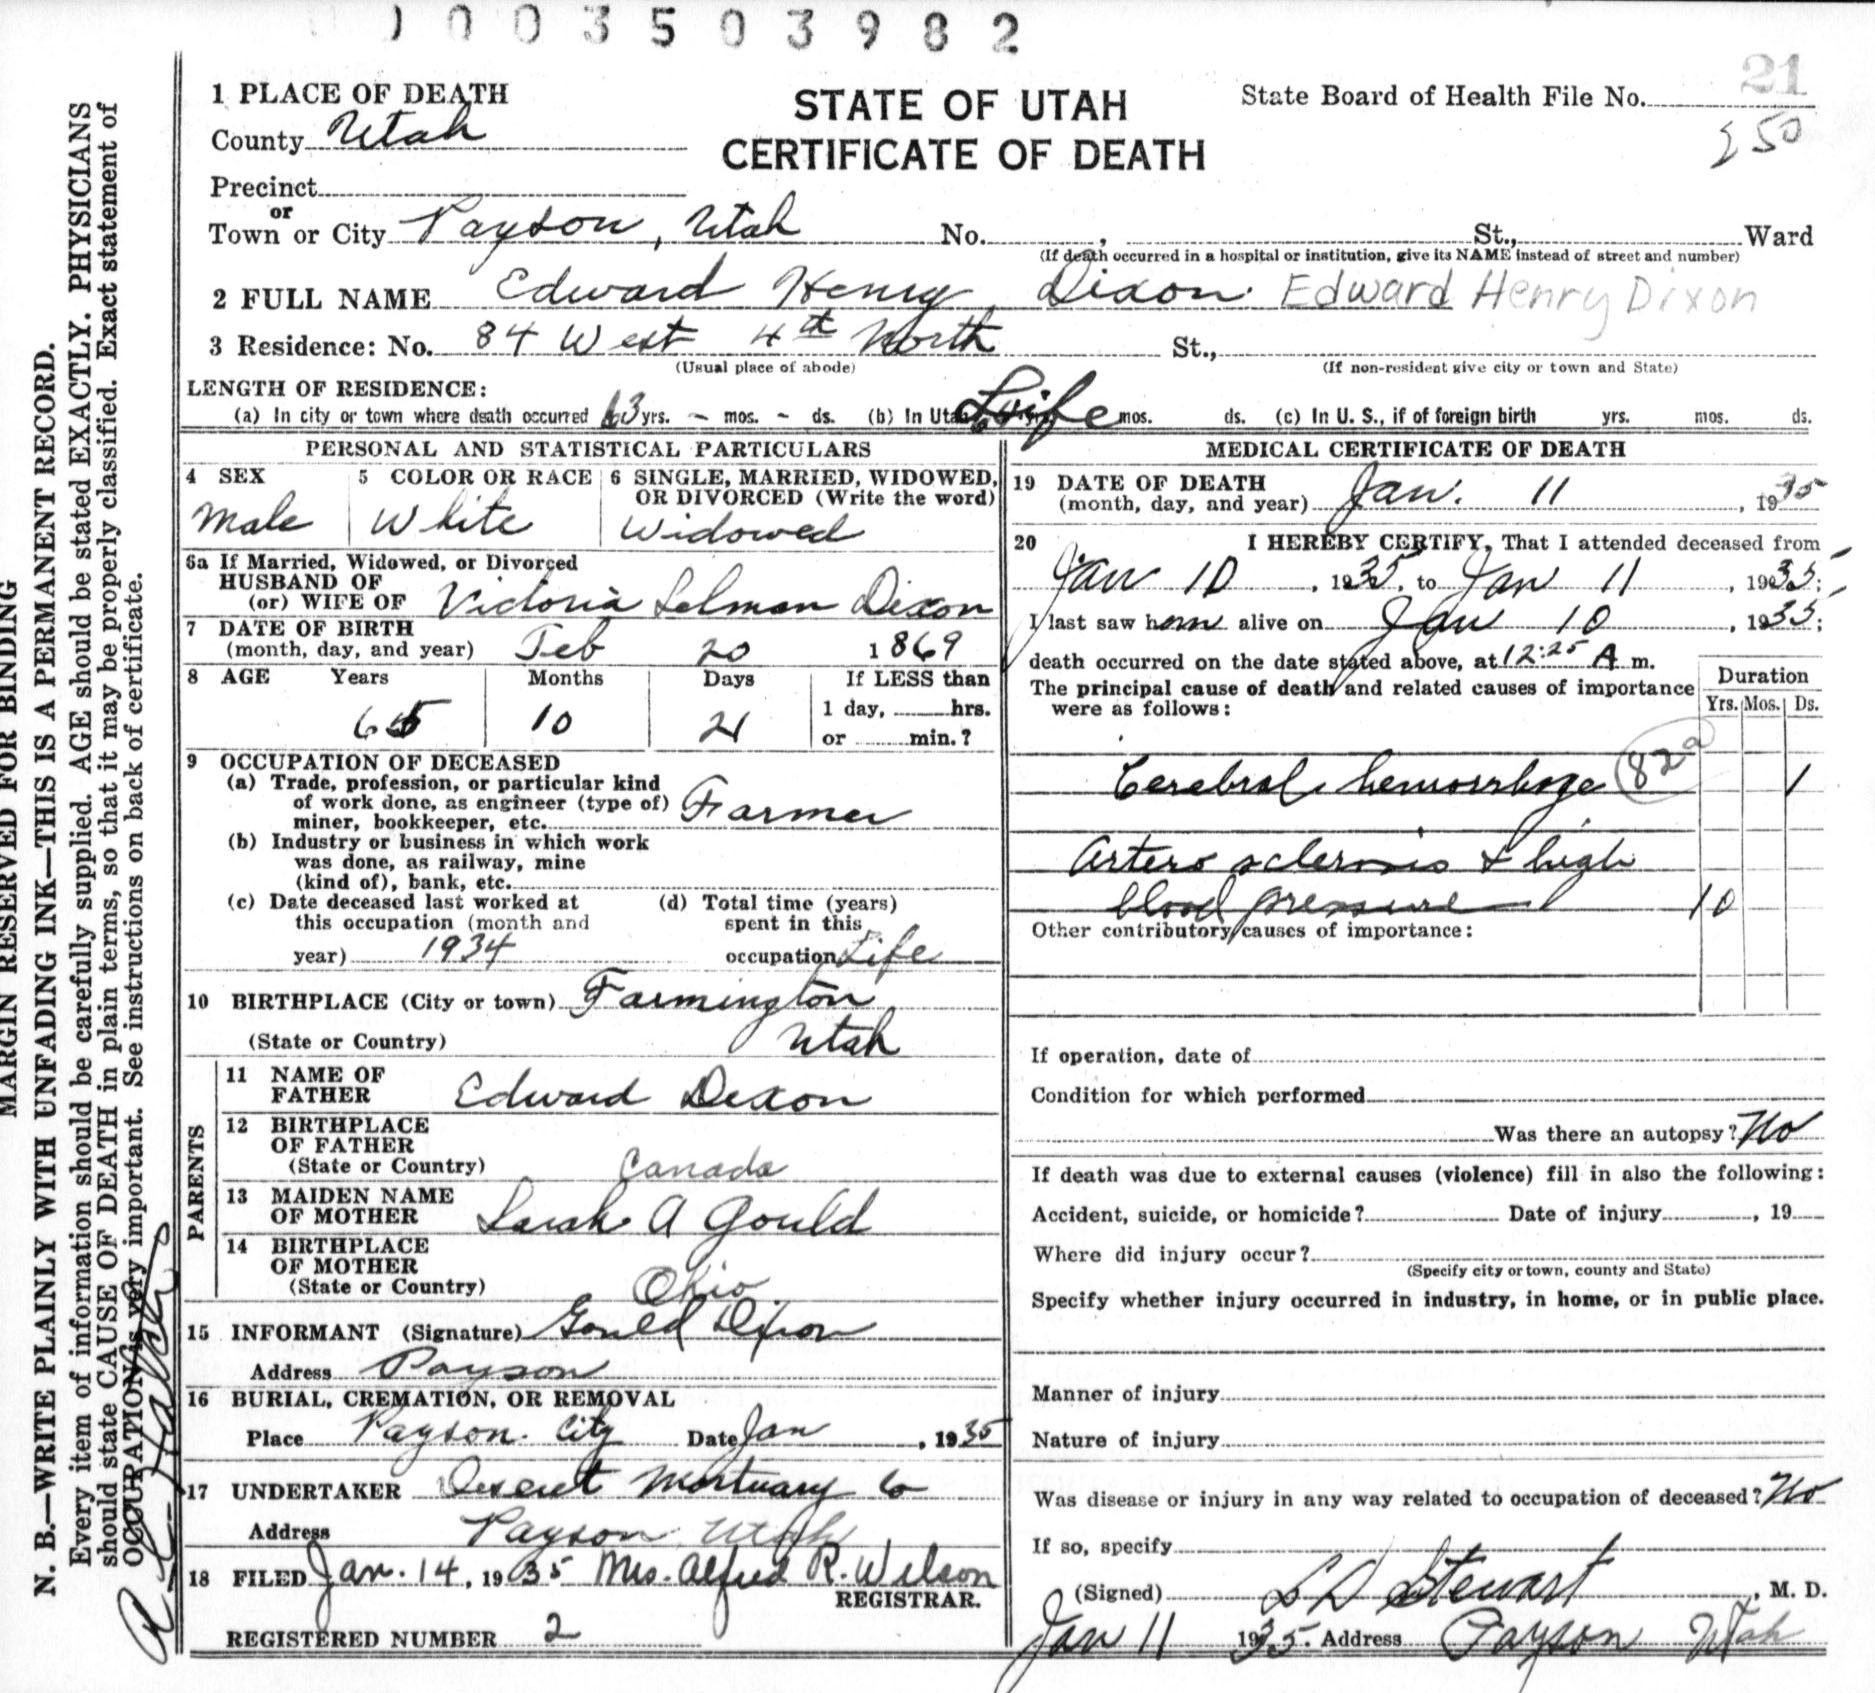 0 0 0 3 5 0 3 9 8 2
21
1 PLACE OF DEATH
STATE OF UTAH
CERTIFICATE OF DEATH
State Board of Health File No.
250
County Utah
Precinct
or
Town or City Payson, Utah No. , St., Ward
(If death occurred in a hospital or institution, give its NAME instead of street and number)
2 FULL NAME Edward Henry Dixon Edward Henry Dixon
3 Residence: No. 84 West 4th North St.,
(Usual place of abode) (If non-resident give city or town and State)
LENGTH OF RESIDENCE:
(a) In city or town where death occurred 63 yrs. - mos. - ds. (b) In Utah Life mos. ds. (c) In U. S., if of foreign birth yrs. mos. ds.
PERSONAL AND STATISTICAL PARTICULARS
4 SEX
Male
5 COLOR OR RACE
White
6 SINGLE, MARRIED, WIDOWED,
OR DIVORCED (Write the word)
Widowed
6a If Married, Widowed, or Divorced
HUSBAND OF
(or) WIFE OF Victoria Selman Dixon
7 DATE OF BIRTH
(month, day, and year) Feb 20 1869
8 AGE Years Months Days If LESS than
1 day, hrs.
65 10 21 or min.?
9 OCCUPATION OF DECEASED
(a) Trade, profession, or particular kind
of work done, as engineer (type of)
miner, bookkeeper, etc. Farmer
(b) Industry or business in which work
was done, as railway, mine
(kind of), bank, etc.
(c) Date deceased last worked at
this occupation (month and
year) 1934
(d) Total time (years)
spent in this
occupation Life
10 BIRTHPLACE (City or town) Farmington
(State or Country) Utah
PARENTS
11 NAME OF
FATHER Edward Dixon
12 BIRTHPLACE
OF FATHER
(State or Country) Canada
13 MAIDEN NAME
OF MOTHER Sarah A Gould
14 BIRTHPLACE
OF MOTHER
(State or Country) Ohio
15 INFORMANT (Signature) Gould Dixon
Address Payson
16 BURIAL, CREMATION, OR REMOVAL
Place Payson City Date Jan , 1935
17 UNDERTAKER Deseret Mortuary Co
Address Payson Utah
18 FILED Jan. 14, 1935 Mrs. Alfred R. Wilson
REGISTRAR.
REGISTERED NUMBER 2
MEDICAL CERTIFICATE OF DEATH
19 DATE OF DEATH
(month, day, and year) Jan. 11 , 1935
20 I HEREBY CERTIFY, That I attended deceased from
Jan 10 , 1935, to Jan 11 , 1935;
I last saw him alive on Jan 10 , 1935;
death occurred on the date stated above, at 12:25 A m.
The principal cause of death and related causes of importance
were as follows:
Duration
Yrs. Mos. Ds.
Cerebral hemorrhage 82a 1
Arterio sclerosis & high
blood pressure 10
Other contributory causes of importance:
If operation, date of
Condition for which performed
Was there an autopsy? No
If death was due to external causes (violence) fill in also the following:
Accident, suicide, or homicide? Date of injury , 19
Where did injury occur?
(Specify city or town, county and State)
Specify whether injury occurred in industry, in home, or in public place.
Manner of injury
Nature of injury
Was disease or injury in any way related to occupation of deceased? No
If so, specify
(Signed) L D Stewart , M. D.
Jan 11 1935. Address Payson Utah
MARGIN RESERVED FOR BINDING
N. B.—WRITE PLAINLY WITH UNFADING INK—THIS IS A PERMANENT RECORD.
Every item of information should be carefully supplied. AGE should be stated EXACTLY. PHYSICIANS
should state CAUSE OF DEATH in plain terms, so that it may be properly classified. Exact statement of
OCCUPATION is very important. See instructions on back of certificate.